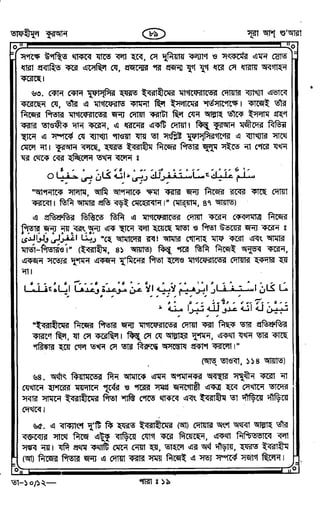 তাফহীমুল কুরআন
৮৯
সূরা আশ শু'আরা
সপক্ষে উপস্থিত থাকবে যাতে বলা হবে, সে দুনিয়ায় কল্যাণ ও সৎকর্মের এমন স্রোত
ধারা প্রবাহিত করে এসেছিল যে, প্রজন্মের পর প্রজন্ম যুগ যুগ ধরে সে ধারায় অবগাহন
করেছে।
৬৩. কোন কোন মুফাস্সির হযরত ইবরাহীমের মাগফেরাতের দোয়ার ব্যাখ্যা এভাবে
করেছেন যে, তাঁর এ মাগফেরাত কামনা ছিল ইসলামের শর্তসাপেক্ষে। কাজেই তাঁর
নিজের পিতার মাগফেরাতের জন্য দোয়া করাটা ছিল যেন আল্লাহ তাঁকে ইসলাম গ্রহণ
করার তাওফীক দান করেন, এ ধরনের একটি দোয়া। কিন্তু কুরআন মজীদের বিভিন্ন
স্থানে এ সম্পর্কে যে ব্যাখ্যা পাওয়া যায় তা সংশ্লিষ্ট মুফাস্সিরগণের এ ব্যাখ্যার সাথে
মেলে না। কুরআন বলছে, হযরত ইবরাহীম নিজের পিতার জুলুম সইতে না পেরে যখন
ঘর থেকে বের হচ্ছিলেন তখন বলেন ঃ
سَلَامٌ عَلَيْكَ سَأَسْتَغْفِرُ لَكَ رَبِّي إِنَّهُ كَانَ بِي حَفِيًّا
"আপনাকে সালাম, আমি আপনাকে ক্ষমা করার জন্য নিজের রবের কাছে দোয়া
করবো। তিনি আমার প্রতি বড়ই মেহেরবান।" (মারয়াম, ৪৭ আয়াত)
এ প্রতিশ্রুতির ভিত্তিতে তিনি এ মাগফেরাতের দোয়া করেন কেবলমাত্র নিজের
পিতার জন্য নয় বরং অন্য এক স্থানে বলা হয়েছে মাতা ও পিতা উভয়ের জন্য করেন ঃ
رَبَّنَا اغْفِرْ لِي وَلِوَالِدَيَّ "হে আমাদের রব! আমার গোনাহ মাফ করো এবং আমার
মাতা-পিতারও।" (ইবরাহীম, ৪১ আয়াত) কিন্তু পরে তিনি নিজেই অনুভব করেন,
একজন সত্যের দুশমন একজন মু'মিনের পিতা হলেও মাগফেরাতের দোয়ার হকদার হয়
না।
مَا كَانَ اسْتِغْفَارُ إِبْرَاهِيمَ لِأَبِيهِ إِلَّا عَنْ مَوْعِدَةٍ وَعَدَهَا إِيَّاهُ فَلَمَّا
تَبَيَّنَ لَهُ أَنَّهُ عَدُوٌّ لِلَّهِ تَبَرَّأَ مِنْهُ
"ইবরাহীমের নিজের পিতার জন্য মাগফেরাতের দোয়া করা নিছক তার প্রতিশ্রুতির
কারণে ছিল, যা সে করেছিল। কিন্তু সে যে আল্লাহর দুশমন, একথা যখন তার কাছে
পরিষ্কার হয়ে গেল তখন সে তার বিরুদ্ধে অসন্তোষ প্রকাশ করলো।"
(আত্ তাওবা, ১১৪ আয়াত)
৬৪. অর্থাৎ কিয়ামতের দিন আমাকে এমন অপমানকর অবস্থার সম্মুখীন করো না
যেখানে হাশরের ময়দানে পূর্বের ও পরের সমগ্র জনগোষ্ঠী একত্র হবে সেখানে তাদের
সবার সামনে ইবরাহীমের পিতা শাস্তি পেতে থাকবে এবং ইবরাহীম তা দাঁড়িয়ে দাঁড়িয়ে
দেখবে।
৬৫. এ বাক্যাংশ দু'টি কি হযরত ইবরাহীমের (আ) দোয়ার অংশ অথবা আল্লাহ তাঁর
বক্তব্যের সাথে নিজে এটুকু বাড়িয়ে যোগ করে দিয়েছেন, একথা নিশ্চিতভাবে বলা
সম্ভব নয়। যদি প্রথম কথাটি মেনে নেয়া হয়, তাহলে এর অর্থ দাঁড়ায়, হযরত ইবরাহীম
(আ) নিজের পিতার জন্য এ দোয়া করার সময় নিজেই এ সত্য সম্পর্কে সজাগ ছিলেন।
তা-১০/১২—
পারা ঃ ১৯